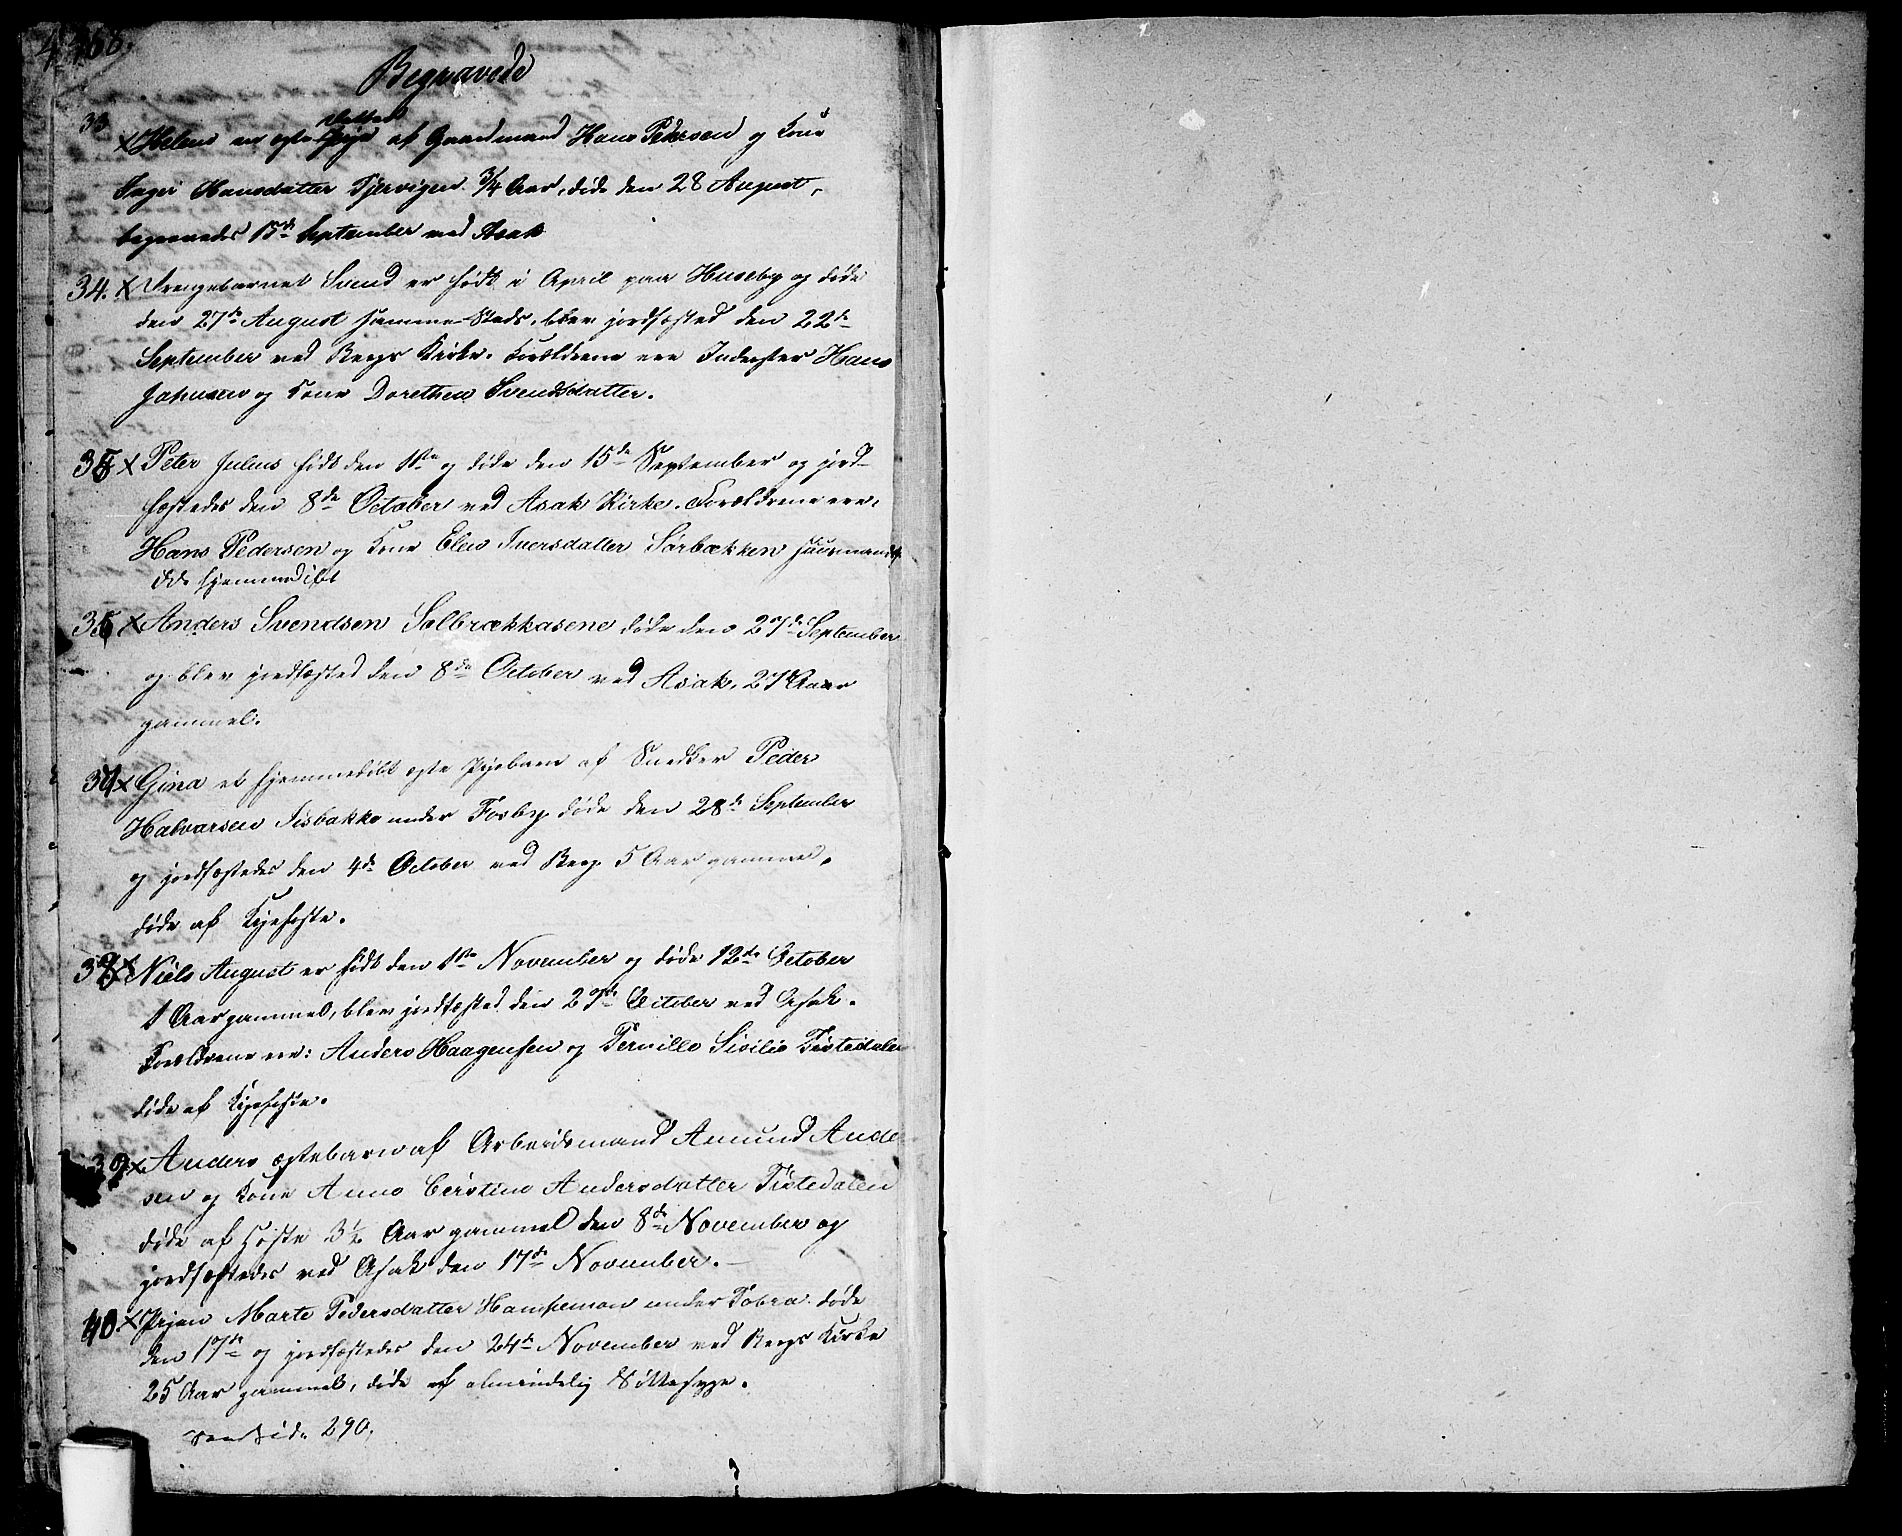 468.
Begravede
33 x Helene en ægte Datter af Gaardmand Hans Pedersen og Kone
Inger Hansdatter Tjervigen 3/4 Aar, døde den 28 August,
begravedes 15de September ved Asak
34. x Drengebarnet Svend er født i April paa Huseby og døde
den 27de August samme Steds, blev jordfæsted den 22de
September ved Bergs Kirke. Forældrene ere Inderster Hans
Johnsen og Kone Dorethea Svendsdatter.
35 x Peter Julius født den 1ste og døde den 15de September og jord-
fæstedes den 8de October ved Asak Kirke. Forældrene ere,
Hans Pedersen og Kone Elen Iversdatter Sørbækken
ikke hjemmedøbt
36 x Anders Svendsen Solbrækkasene døde den 27de September
og blev jordfæsted den 8de October ved Asak, 27 Aar
gammel.
37 x Gina et hjemmedøbt ægte Pigebarn af Snedker Peder
Halvorsen Iisbakke under Fosby døde den 28de September
og jordfæstedes den 4de October ved Berg 5 Aar gammel,
døde af Kighoste.
38 x Niels August er født den 1ste November og døde 12de October
1 Aar gammel, blev jordfæsted den 27de October ved Asak.
Forældrene ere: Anders Haagensen og Pernille Sisilie Tistedalen
døde af Kighoste.
39 x Anders ægtebarn af Arbeidsmand Amund Ander
sen og Kone Anne Cerstine Andersdatter Tistedalen
døde af Hoste 3½ Aar gammel den 8de November og
jordfæstedes ved Asak den 17de November.
40. x Pigen Marte Pedersdatter Hansemon under Torra døde
den 17de og jordfæstedes den 24de November ved Bergs Kirke
25 Aar gammel, døde af almindelig Sottesyge.
vend Side 290,